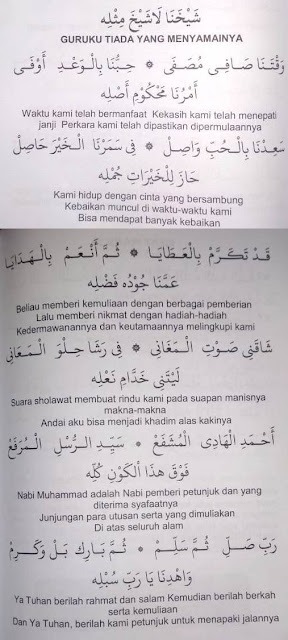 شَيْخَنَا لَاشَيْخَ مِثْلِه
GURUKU TIADA YANG MENYAMAINYA
وَقْتَنَا صَافِى مُصَفَّى * حِبُّنَا بِالْوَعْدِ أَوْفَى
أَمْرُنَا مَحْكُوْمِ أَصْلِه
Waktu kami telah bermanfaat Kekasih kami telah menepati
janji Perkara kami telah dipastikan dipermulaannya
سَعِدْنَا بِالْحُبِّ وَاصِلْ * فِى سَمَرْنَا الْخَيْرْ حَاصِلْ
حَازَ لِلْخَيْرَاتِ جُمْلِه
Kami hidup dengan cinta yang bersambung
Kebaikan muncul di waktu-waktu kami
Bisa mendapat banyak kebaikan
قَدْ تَكَرَّمْ بِالْعَطَايَا * ثُمَّ أَنْعَمْ بِالْهَدَايَا
عَمَّنَا جُوْدُه فَضْلِه
Beliau memberi kemuliaan dengan berbagai pemberian
Lalu memberi nikmat dengan hadiah-hadiah
Kedermawanannya dan keutamaannya melingkupi kami
شَاقَنِى صَوْتِ الْمَغَانِى * فِى رَشَا حِلْوِ الْمَعَانِى
لَيْتَنِى خَدَّامِ نَعْلِه
Suara sholawat membuat rindu kami pada suapan manisnya
makna-makna
Andai aku bisa menjadi khadim alas kakinya
أَحْمَدِ الْهَادِى الْمُشَفَّعْ * سَيِّدِ الرُّسْلِ الْمُرَفَّعْ
فَوْقَ هذَا الْكَوْنِ كُلِّه
Nabi Muhammad adalah Nabi pemberi petunjuk dan yang
diterima syafaatnya
Junjungan para utusan serta yang dimuliakan
Di atas seluruh alam
رَبِّ صَلِّى ثُمَّ سَلِّمْ * ثُمَّ بَارِكْ بَلْ وَكَرِّمْ
وَاهْدِنَا يَا رَبِّ سُبْلِه
Ya Tuhan berilah rahmat dan salam Kemudian berilah berkah
serta kemuliaan
Dan Ya Tuhan, berilah kami petunjuk untuk menapaki jalannya